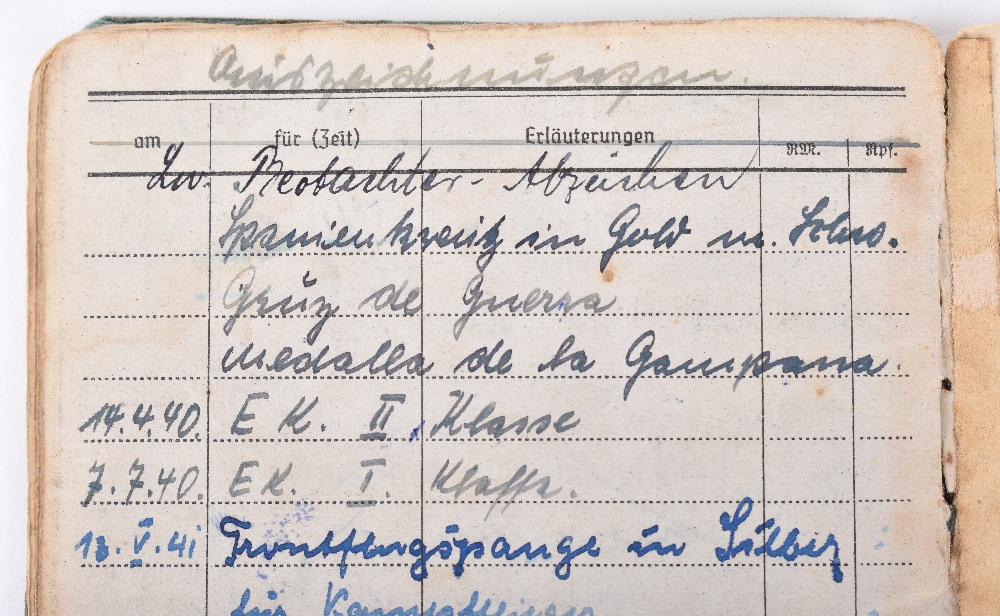 Auszeichnungen.
am für (Zeit) Erläuterungen RM. Rpf.
Lw. Beobachter-Abzeichen
Spanienkreuz in Gold m. Schw.
Gruz de Guerra
Medalla de la Gampana.
14.4.40. E K. II Klasse
7.7.40. EK. I. Klasse.
13.V.41 Frontflugspange in Silber
für Kampfflieger